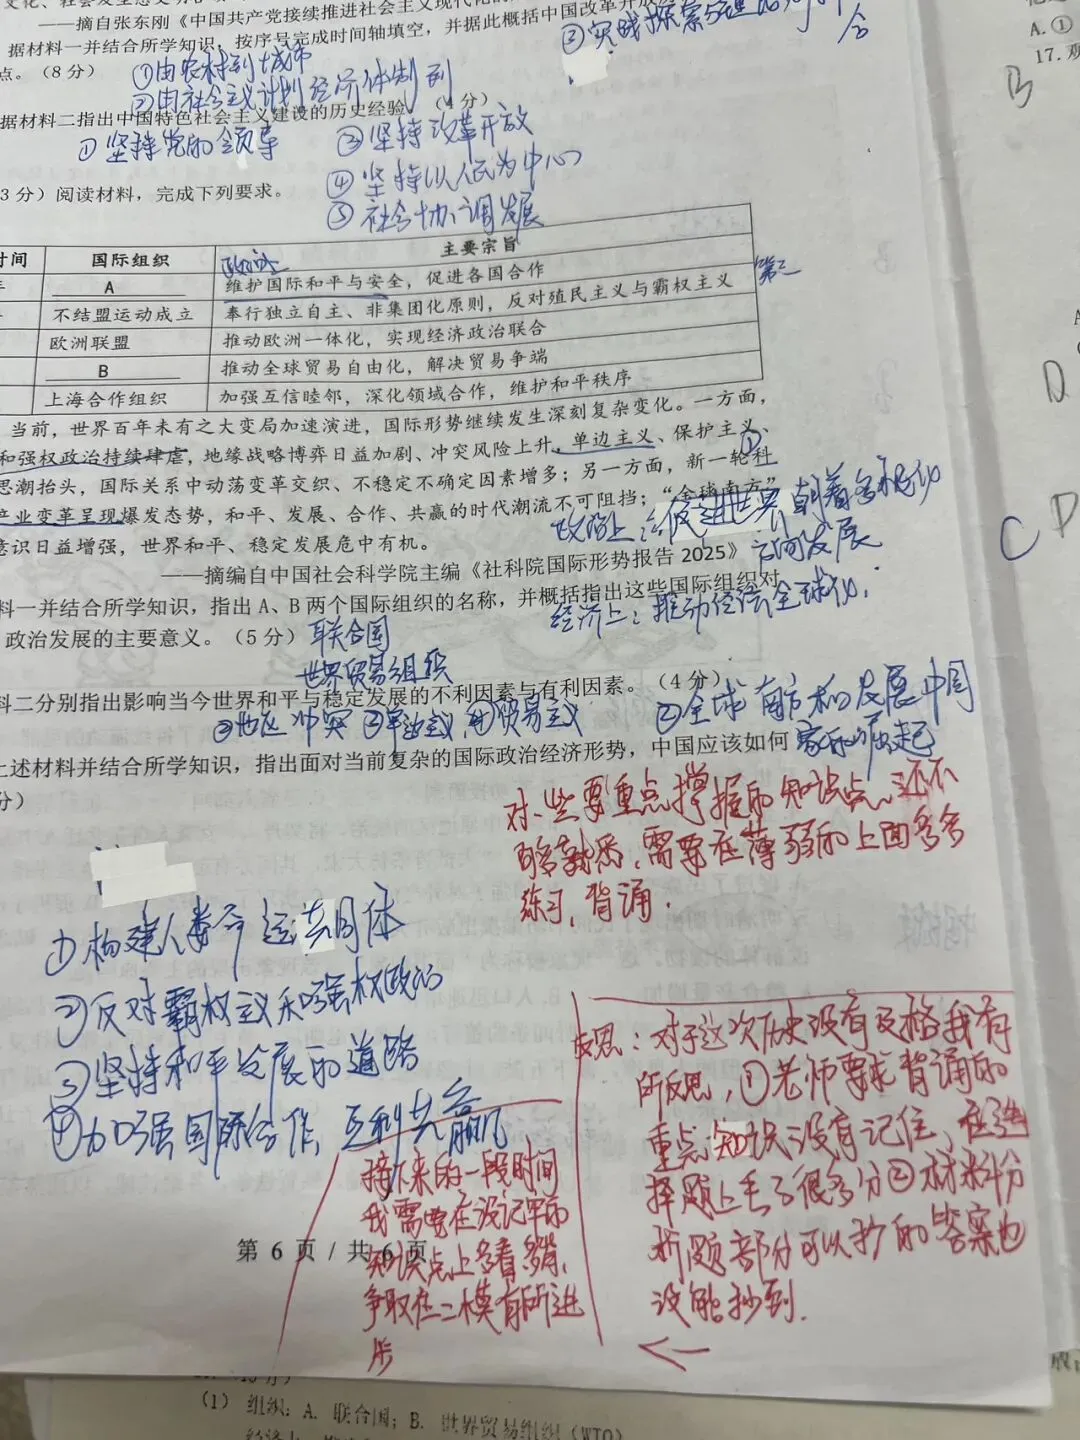 ——摘自张东刚《中国共产党接续推进社会主义现代化的
据材料一并结合所学知识，按序号完成时间轴填空，并据此概括中国改革开放
点。（8 分）
①由农村到城市
②由社会主义计划经济体制到
③实践探索与理论
合
据材料二指出中国特色社会主义建设的历史经验。（4 分）
①坚持党的领导
③坚持改革开放
④坚持以人民为中心
⑤社会协调发展
3 分）阅读材料，完成下列要求。
时间 国际组织 主要宗旨
A 维护国际和平与安全，促进各国合作
第三
不结盟运动成立 奉行独立自主、非集团化原则，反对殖民主义与霸权主义
欧洲联盟 推动欧洲一体化，实现经济政治联合
B 推动全球贸易自由化，解决贸易争端
上海合作组织 加强互信睦邻，深化领域合作，维护和平秩序
当前，世界百年未有之大变局加速演进，国际形势继续发生深刻复杂变化。一方面，
和强权政治持续肆虐，地缘战略博弈日益加剧、冲突风险上升，单边主义、保护主义、
思潮抬头，国际关系中动荡变革交织、不稳定不确定因素增多；另一方面，新一轮科
产业变革呈现爆发态势，和平、发展、合作、共赢的时代潮流不可阻挡；“全球南方”
意识日益增强，世界和平、稳定发展危中有机。
政治上：促进世界朝着多极化
方向发展
——摘编自中国社会科学院主编《社科院国际形势报告 2025》
料一并结合所学知识，指出 A、B 两个国际组织的名称，并概括指出这些国际组织对
经济上：推动经济全球化.
政治发展的主要意义。（5 分）
联合国
世界贸易组织
料二分别指出影响当今世界和平与稳定发展的不利因素与有利因素。（4 分）
③地区冲突 ④贸易主义 ②全球南方和发展中国
家的崛起
上述材料并结合所学知识，指出面对当前复杂的国际政治经济形势，中国应该如何
分）
对一些要重点撑握的知识点、还不
够熟悉，需要在薄弱的上面多多
练习，背诵.
①构建人类命运共同体
②反对霸权主义和强权政治
③坚持和平发展的道路
④加强国际合作，互利共赢
反思：对于这次历史没有及格我有
所反思，①老师要求背诵的
重点知识没有记住，在选
择题上丢了很多分②材料分
析题部分可以抄的答案也
没能抄到.
接下来的一段时间
我需要在没记牢的
知识点上多看多背，
争取在二模有所进
步
第 6 页 / 共 6 页
B
A. ①
17.
D
C
（1） 组织：A. 联合国；B. 世界贸易组织（WTO）